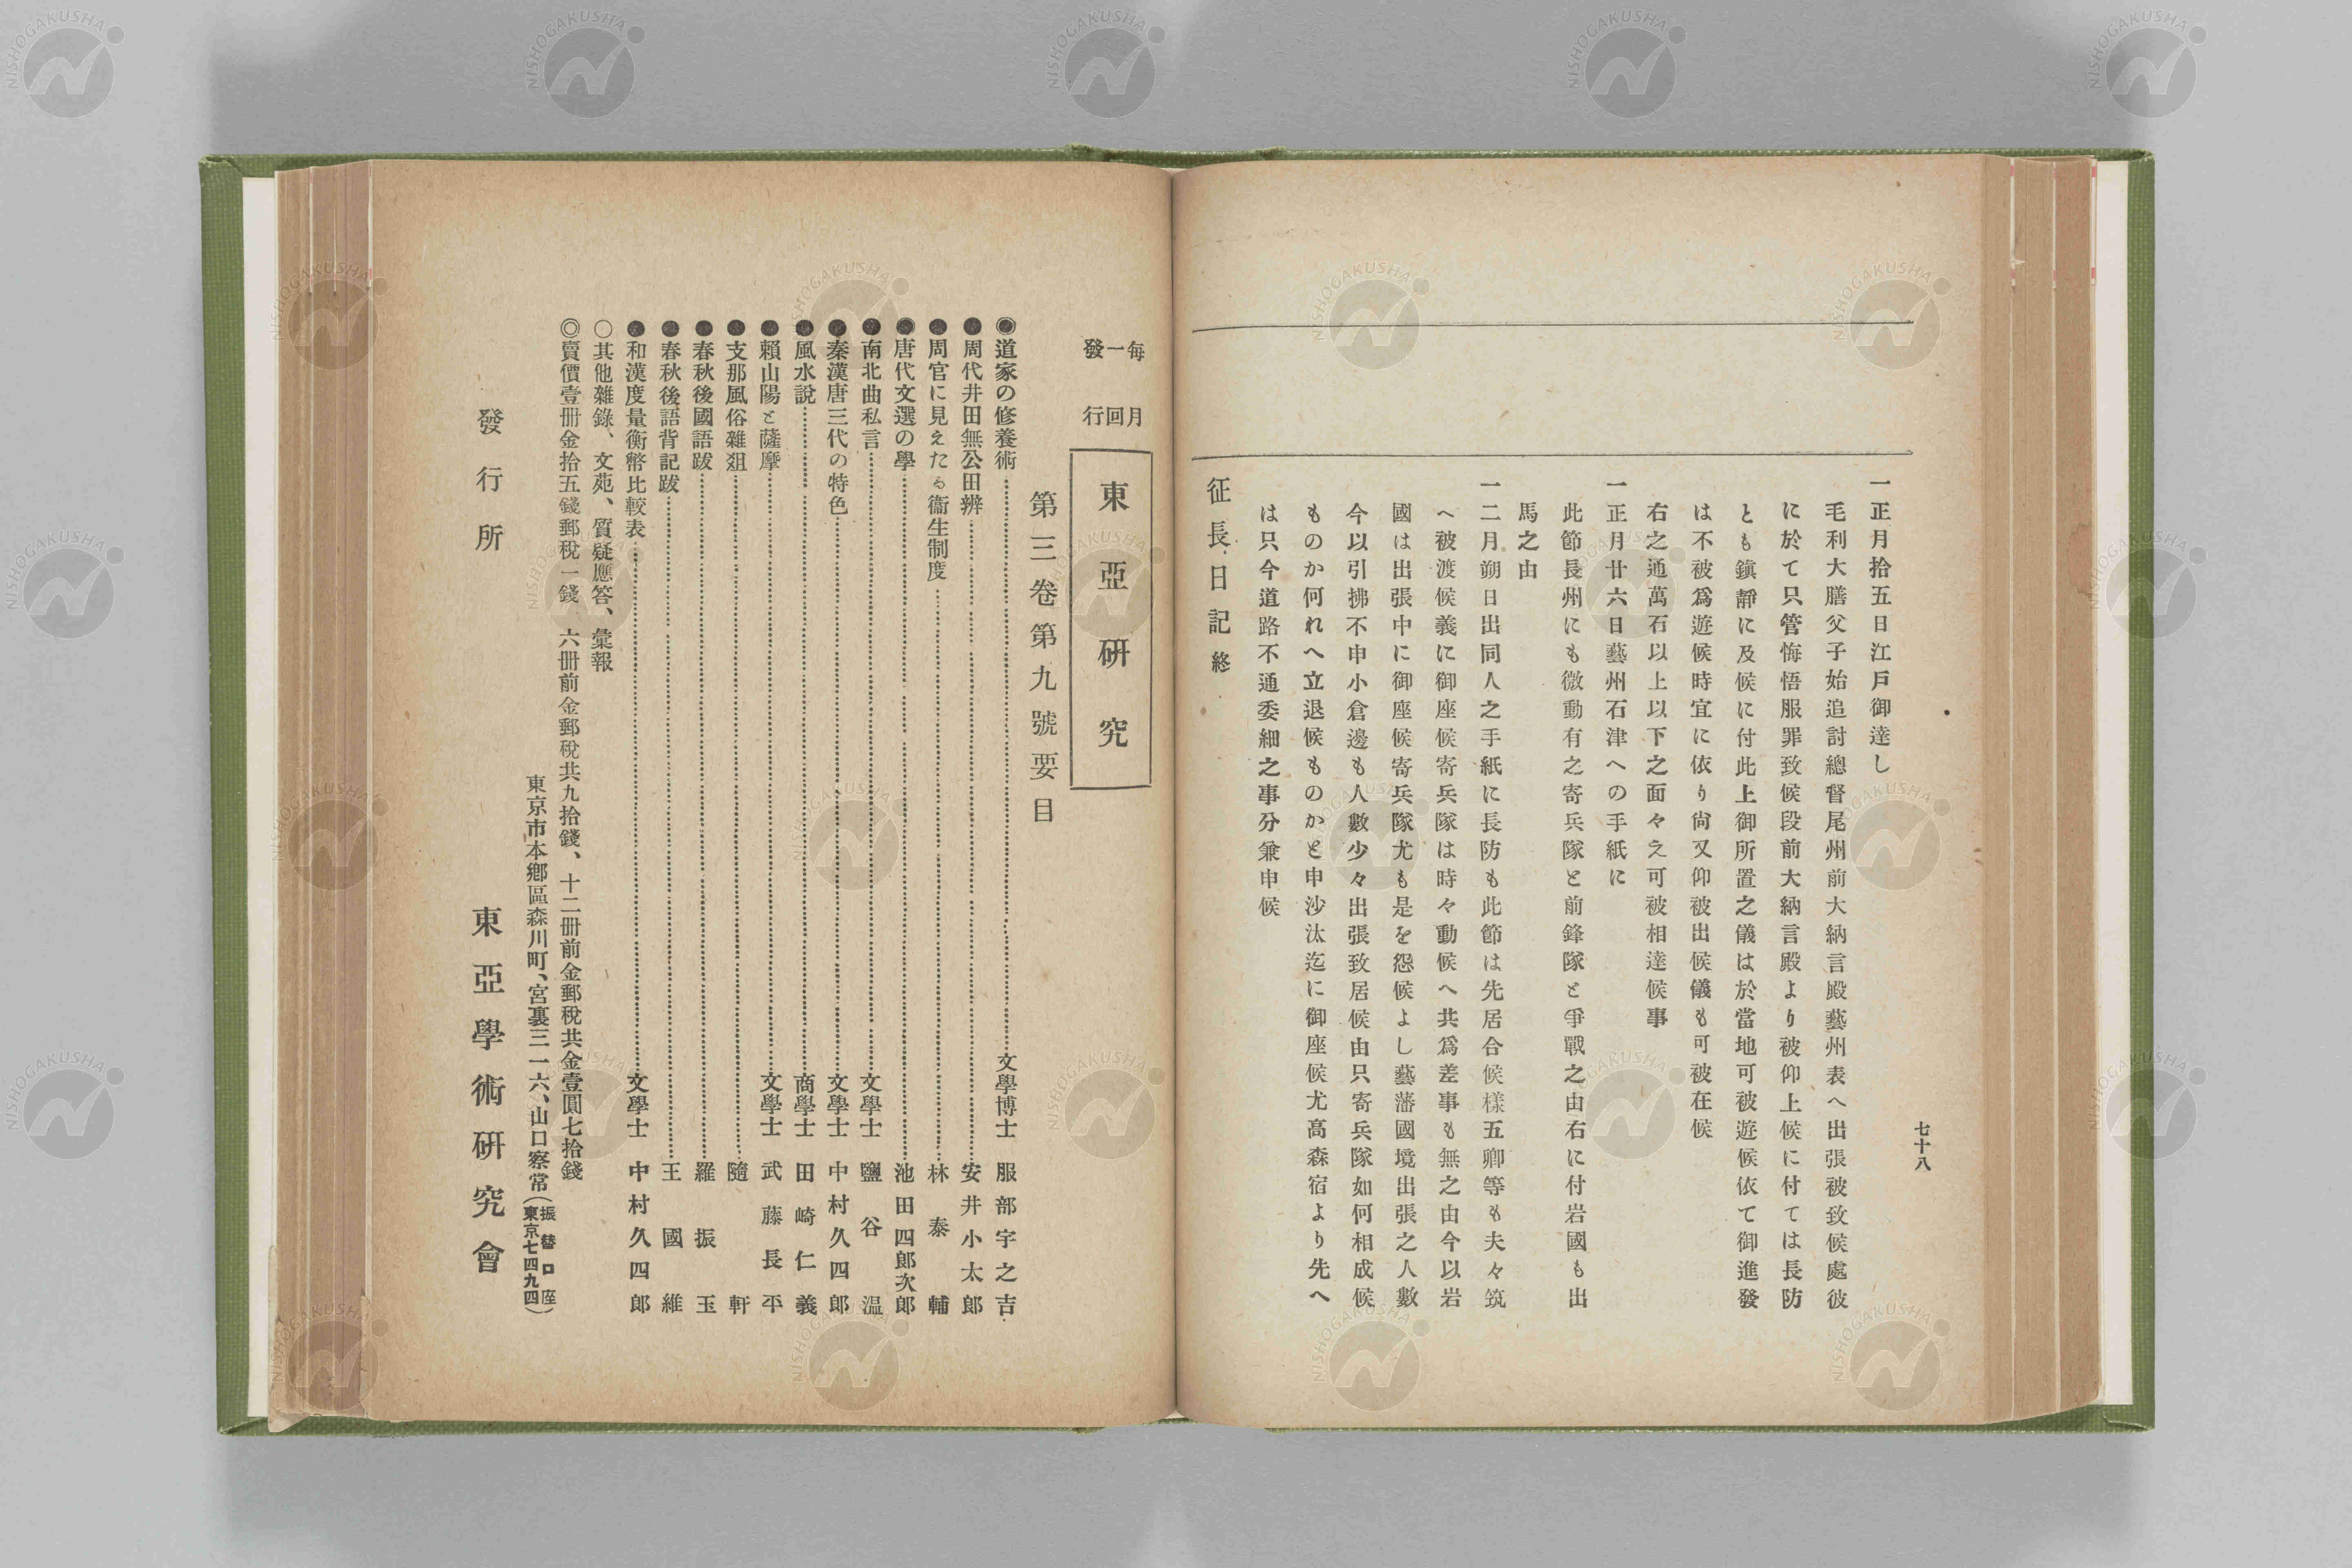 七十八
一正月拾五日江戸御達し
毛利大膳父子始追討總督尾州前大納言殿藝州表へ出張被致候處彼
に於て只管悔悟服罪致候段前大納言殿より被仰上候に付ては長防
とも鎭靜に及候に付此上御所置之儀は於當地可被遊候依て御進發
は不被爲遊候時宜に依り尙又仰被出候儀も可被在候
右之通萬石以上以下之面々え可被相達候事
一正月廿六日藝州石津への手紙に
此節長州にも微動有之寄兵隊と前鋒隊と爭戰之由右に付岩國も出
馬之由
一二月朔日出同人之手紙に長防も此節は先居合候樣五卿等も夫々筑
へ被渡候義に御座候寄兵隊は時々動候へ共爲差事も無之由今以岩
國は出張中に御座候寄兵隊尤も是を怨候よし藝藩國境出張之人數
今以引拂不申小倉邊も人數少々出張致居候由只寄兵隊如何相成候
ものか何れへ立退候ものかと申沙汰迄に御座候尤高森宿より先へ
は只今道路不通委細之事分兼申候
征長日記終
每月
一回
發行
東亞研究
第三卷第九號要目
◉道家の修養術 文學博士 服部宇之吉
●周代井田無公田辨 安井小太郎
●周官に見えたる衞生制度 林泰輔
◉唐代文選の學 池田四郎次郎
●南北曲私言 文學士 鹽谷溫
●秦漢唐三代の特色 文學士 中村久四郎
●風水說 商學士 田崎仁義
●賴山陽と薩摩 文學士 武藤長平
●支那風俗雜爼 隨軒
●春秋後國語跋 羅振玉
●春秋後語背記跋 王國維
●和漢度量衡幣比較表 文學士 中村久四郎
○其他雜錄、文苑、質疑應答、彙報
◎賣價壹册金拾五錢郵稅一錢 六册前金郵稅共九拾錢、十二册前金郵稅共金壹圓七拾錢
東京市本鄕區森川町、宮裏三一六、山口察常(振替口座東京七四九四)
發行所 東亞學術硏究會
NISHOGAKUSHA